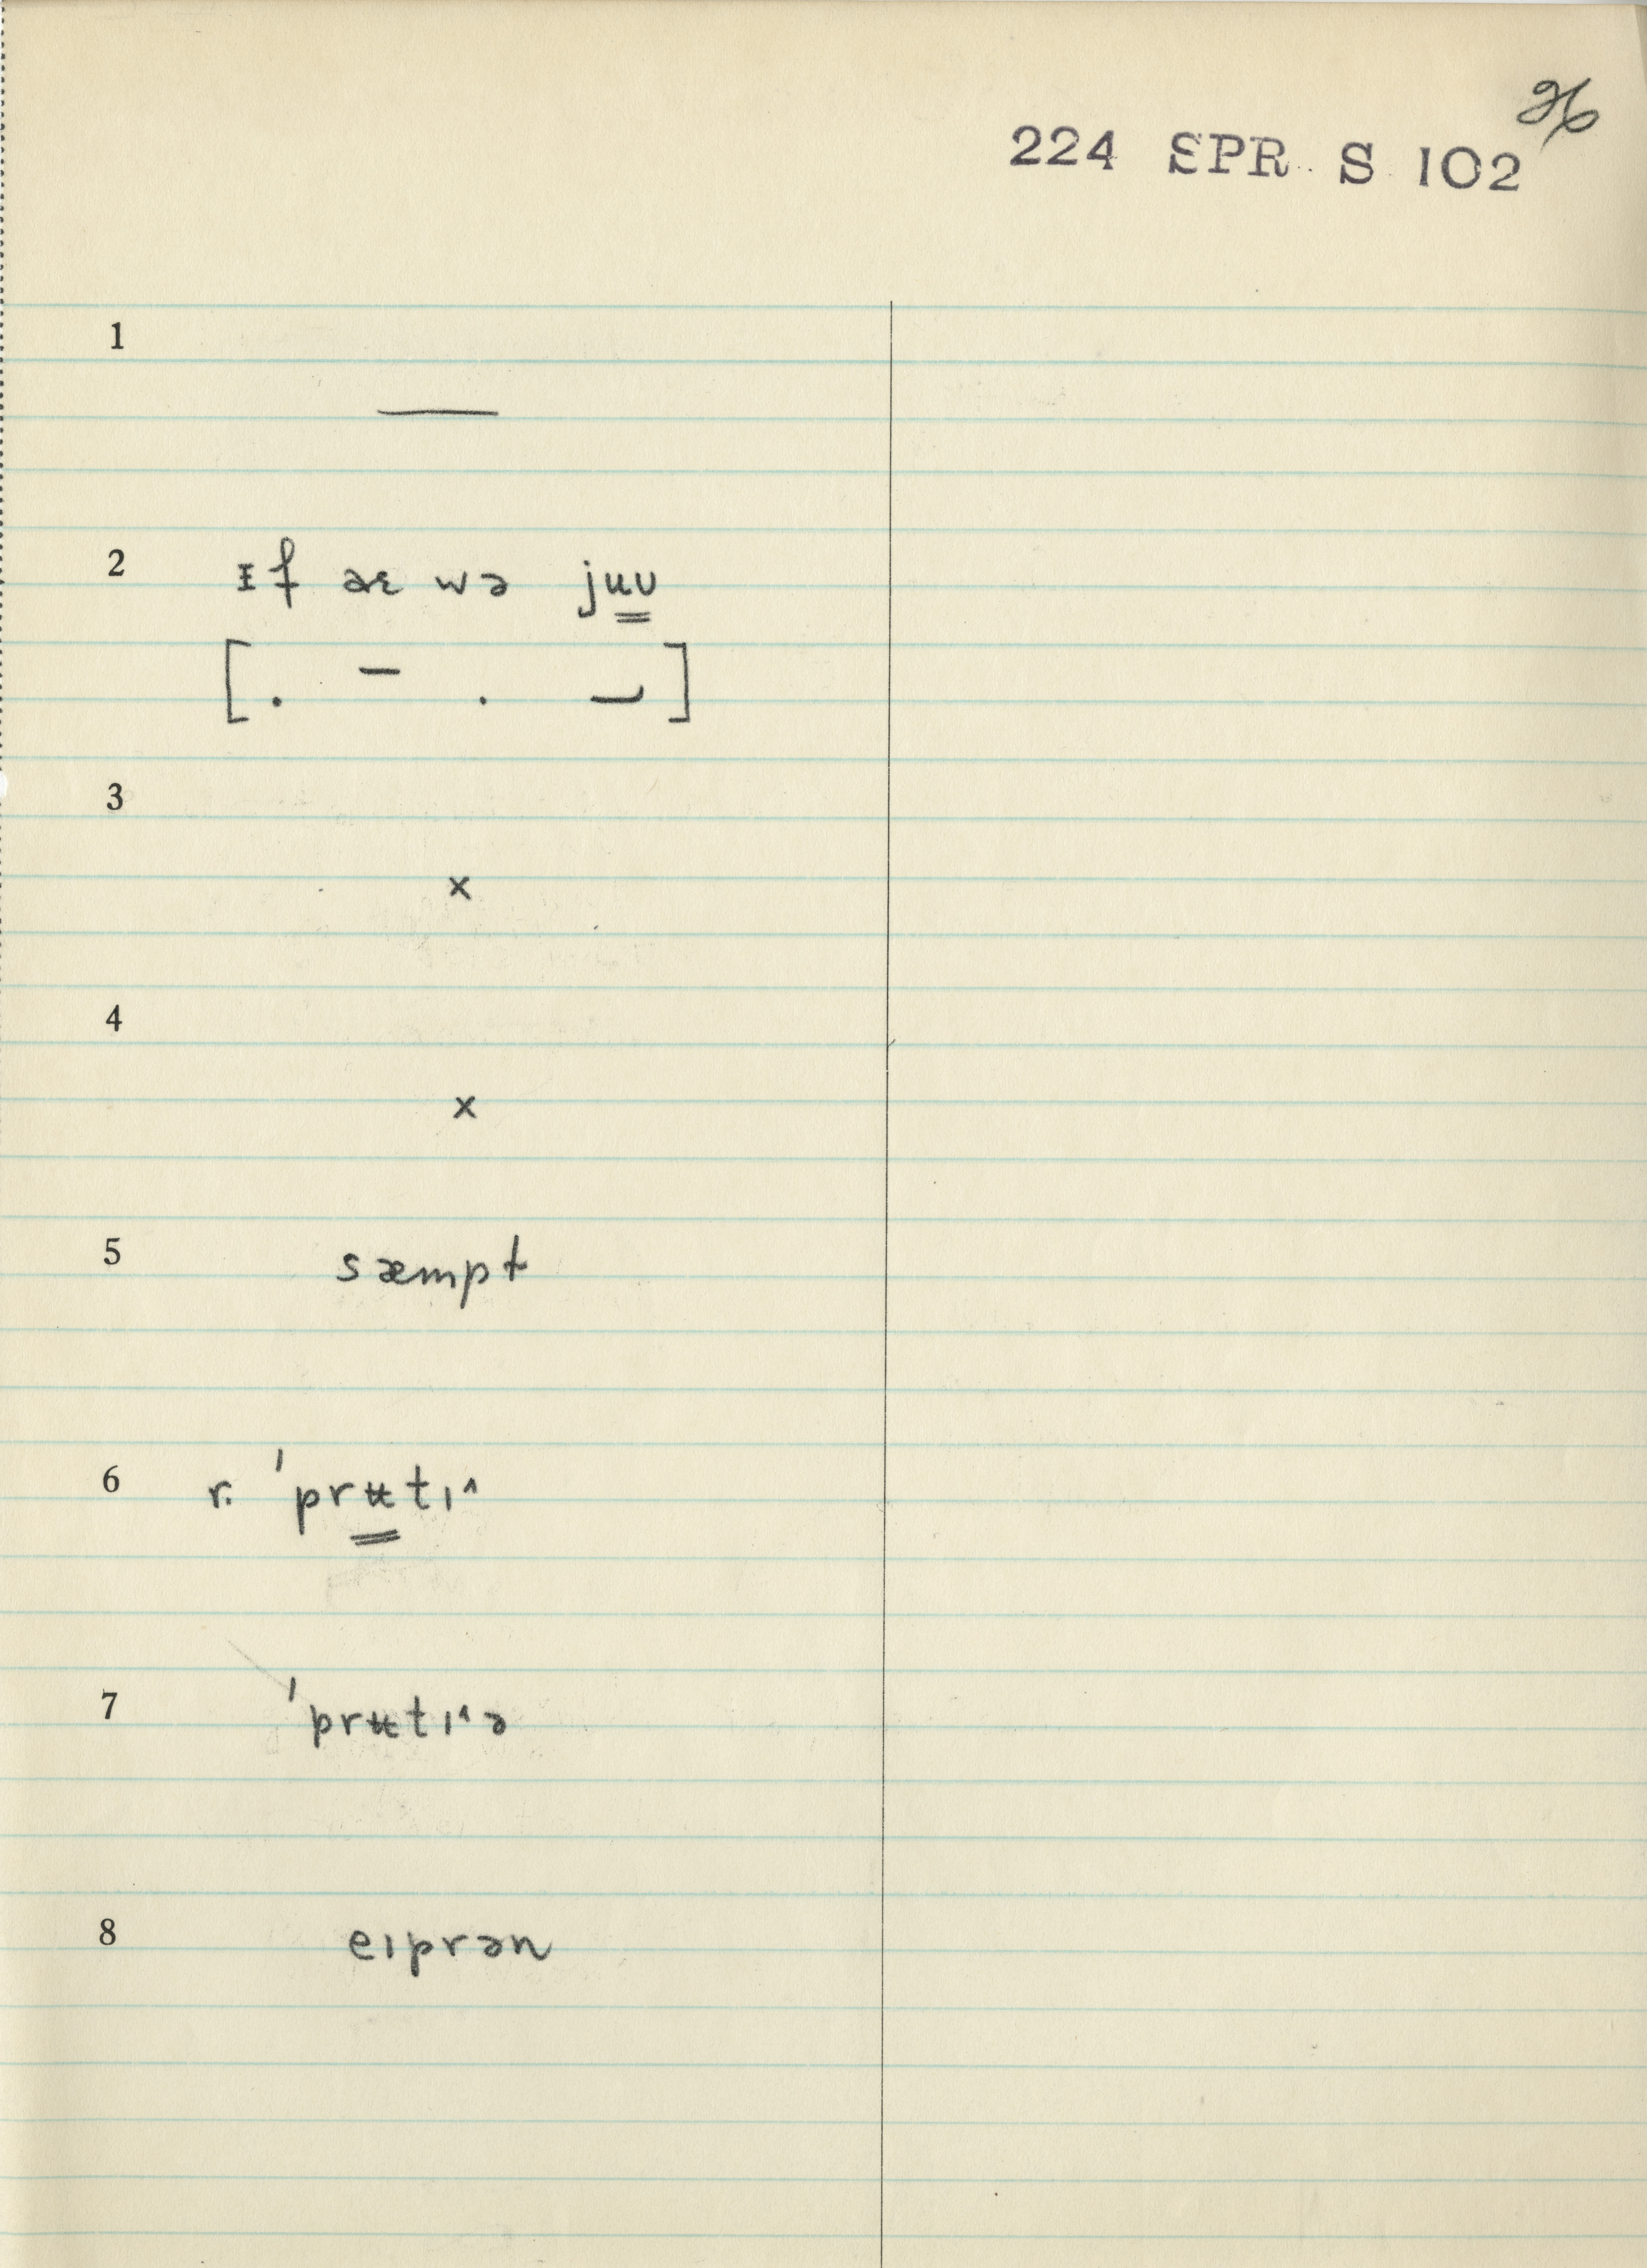 26
224 SPR S 102
1
—
2 ᵻf aɛ wə juʊ
[. – . ⌣]
3
×
4
×
5 sæmpt
6 r. ˈprʉtɪ˄
7 ˈprʉtɪ˄ə
8 eɪprən